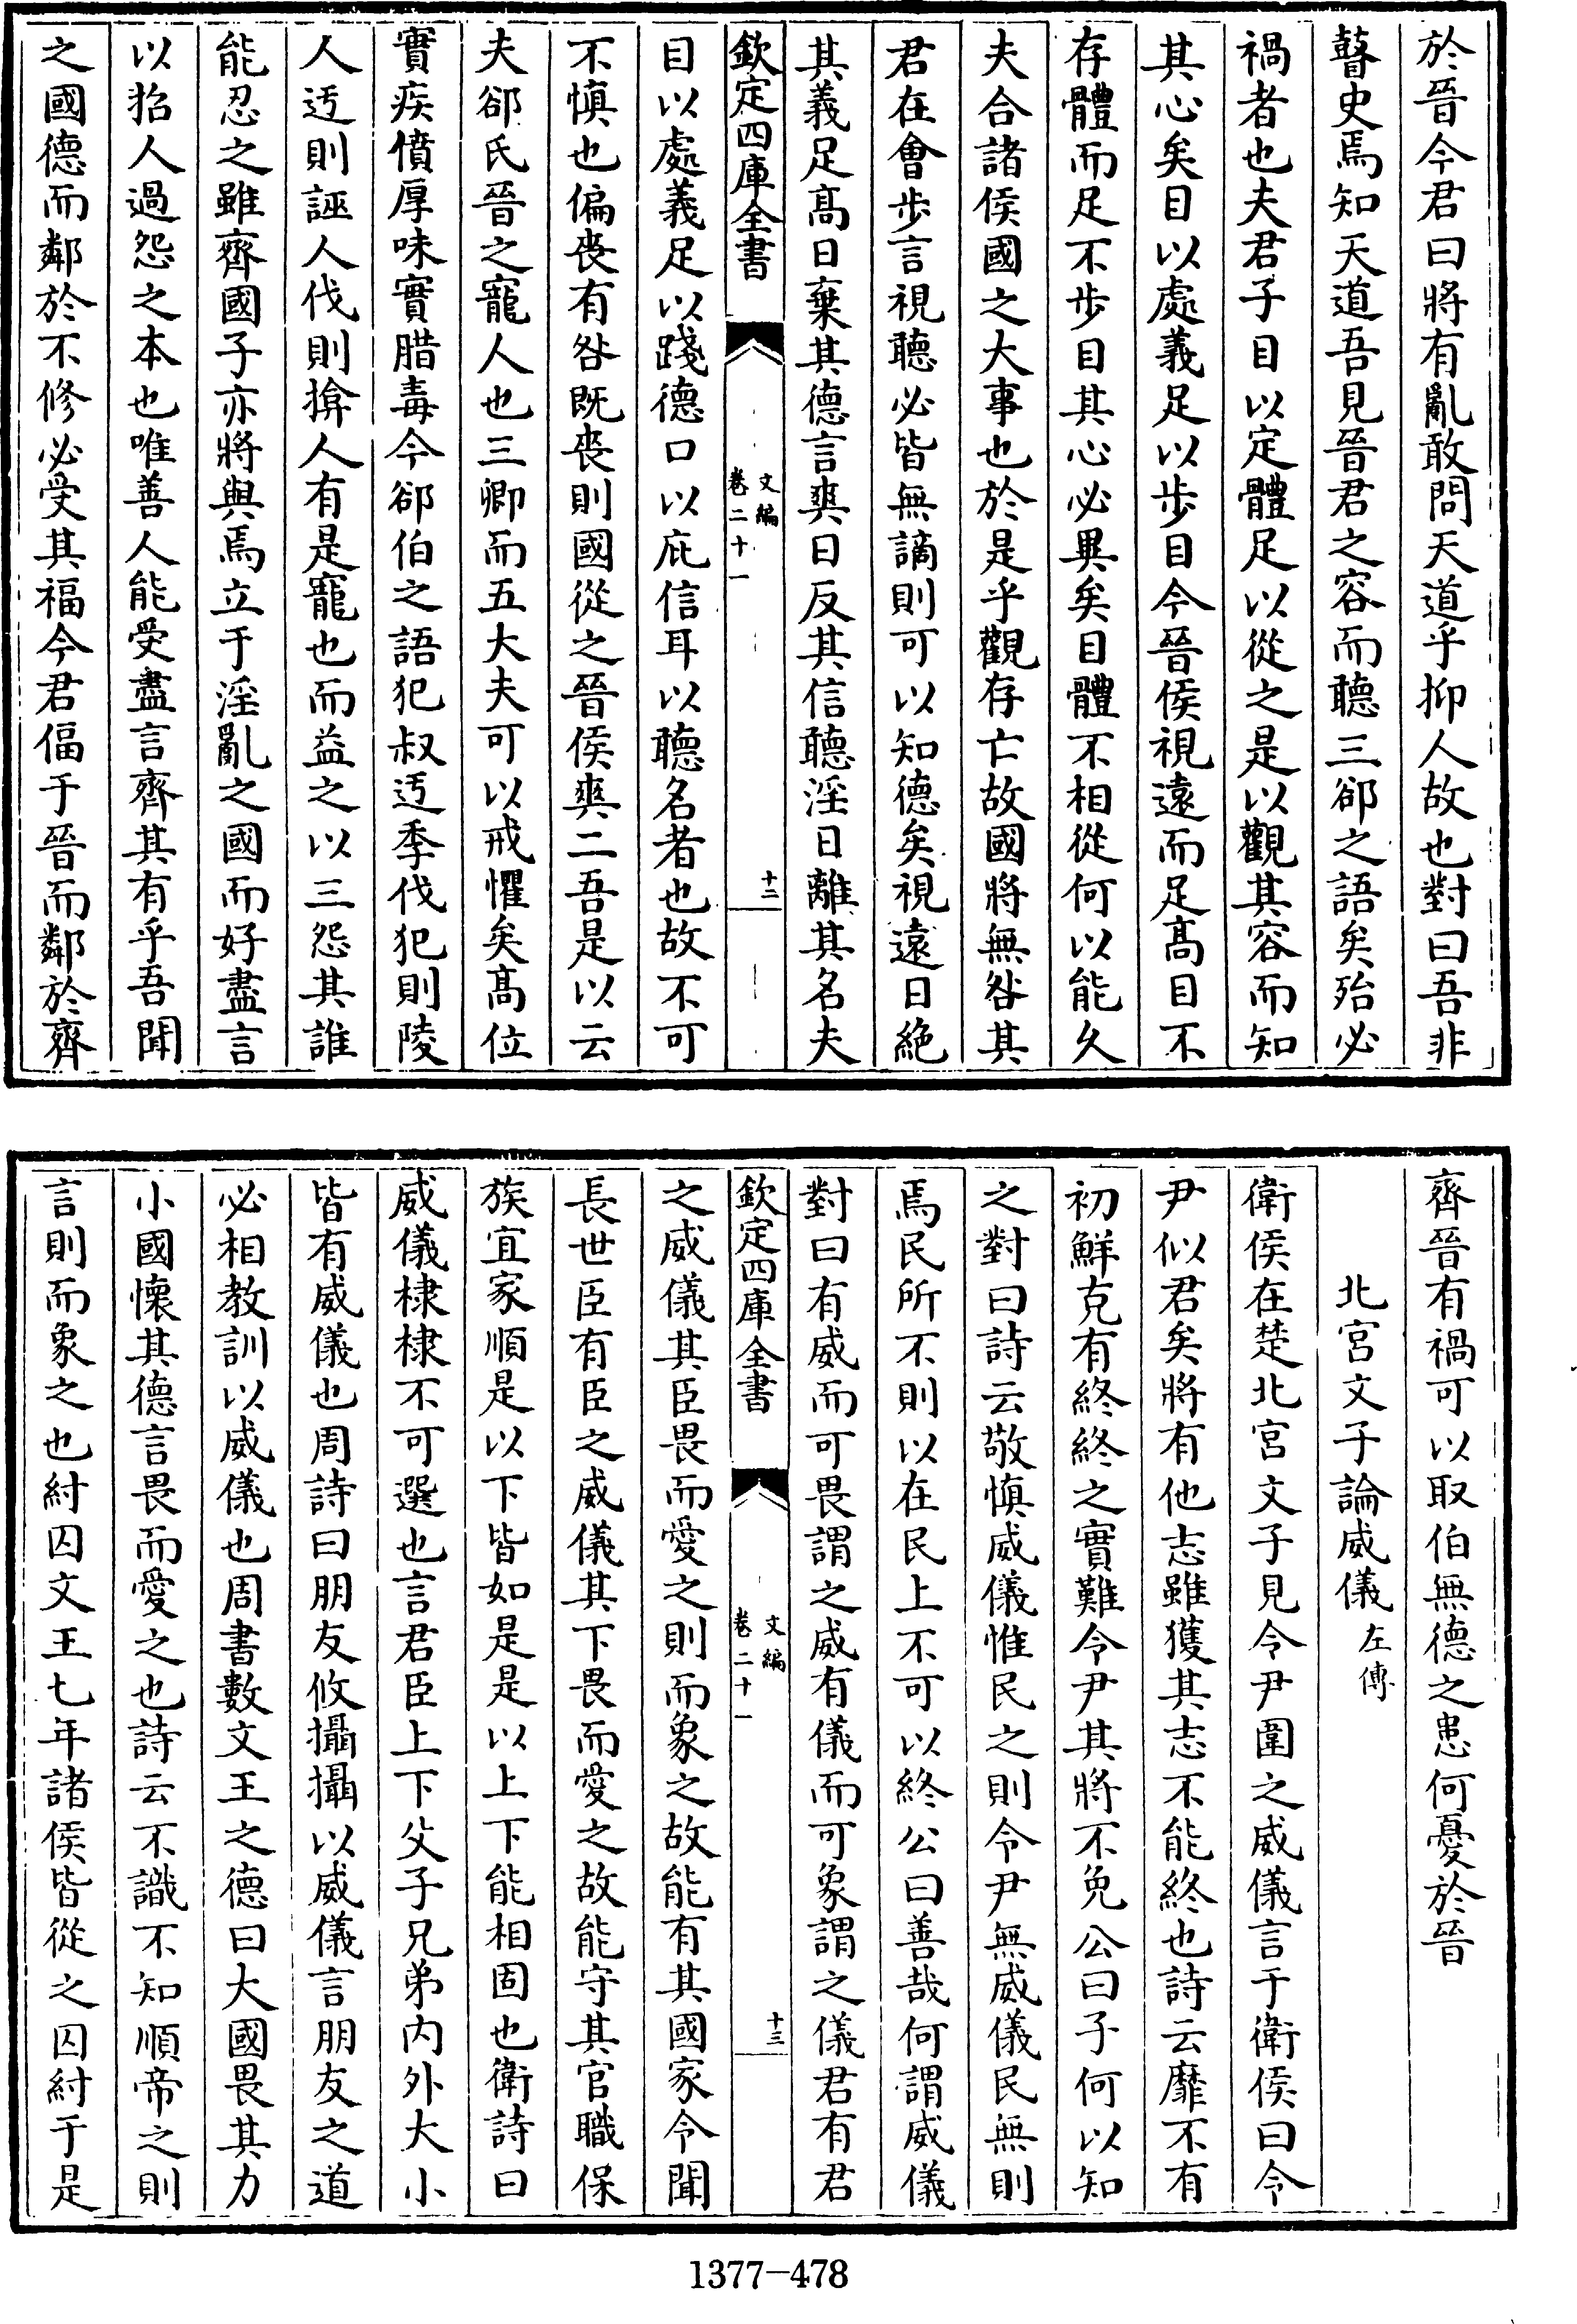 於晉今君曰將有亂敢問天道乎抑人故也對曰吾非
瞽史焉知天道吾見晉君之容而聽三郤之語矣殆必
禍者也夫君子目以定體足以從之是以觀其容而知
其心矣目以處義足以歩目今晉侯視遠而足髙目不
存體而足不歩目其心必異矣目體不相從何以能久
夫合諸侯國之大事也於是乎觀存亡故國將無咎其
君在會歩言視聽必皆無謫則可以知德矣視遠日絶
其義足髙日棄其德言爽日反其信聽淫日離其名夫
欽定四庫全書
文編
卷二十一
十二
目以處義足以踐德口以庇信耳以聽名者也故不可
不慎也偏喪有咎既喪則國從之晉侯爽二吾是以云
夫郤氏晉之寵人也三卿而五大夫可以戒懼矣髙位
實疾僨厚味實腊毒今郤伯之語犯叔迃季伐犯則陵
人迃則誣人伐則揜人有是寵也而益之以三怨其誰
能忍之雖齊國子亦將與焉立于淫亂之國而好盡言
以招人過怨之本也唯善人能受盡言齊其有乎吾聞
之國德而鄰於不修必受其福今君偪于晉而鄰於齊
齊晉有禍可以取伯無德之患何憂於晉
北宮文子論威儀 左傳
衛侯在楚北宮文子見令尹圍之威儀言于衛侯曰令
尹似君矣將有他志雖獲其志不能終也詩云靡不有
初鮮克有終終之實難令尹其將不免公曰子何以知
之對曰詩云敬慎威儀惟民之則令尹無威儀民無則
焉民所不則以在民上不可以終公曰善哉何謂威儀
對曰有威而可畏謂之威有儀而可象謂之儀君有君
欽定四庫全書
文編
卷二十一
十三
之威儀其臣畏而愛之則而象之故能有其國家令聞
長世臣有臣之威儀其下畏而愛之故能守其官職保
族宜家順是以下皆如是是以上下能相固也衛詩曰
威儀棣棣不可選也言君臣上下父子兄弟内外大小
皆有威儀也周詩曰朋友攸攝攝以威儀言朋友之道
必相教訓以威儀也周書數文王之德曰大國畏其力
小國懷其德言畏而愛之也詩云不識不知順帝之則
言則而象之也紂囚文王七年諸侯皆從之囚紂于是
1377-478